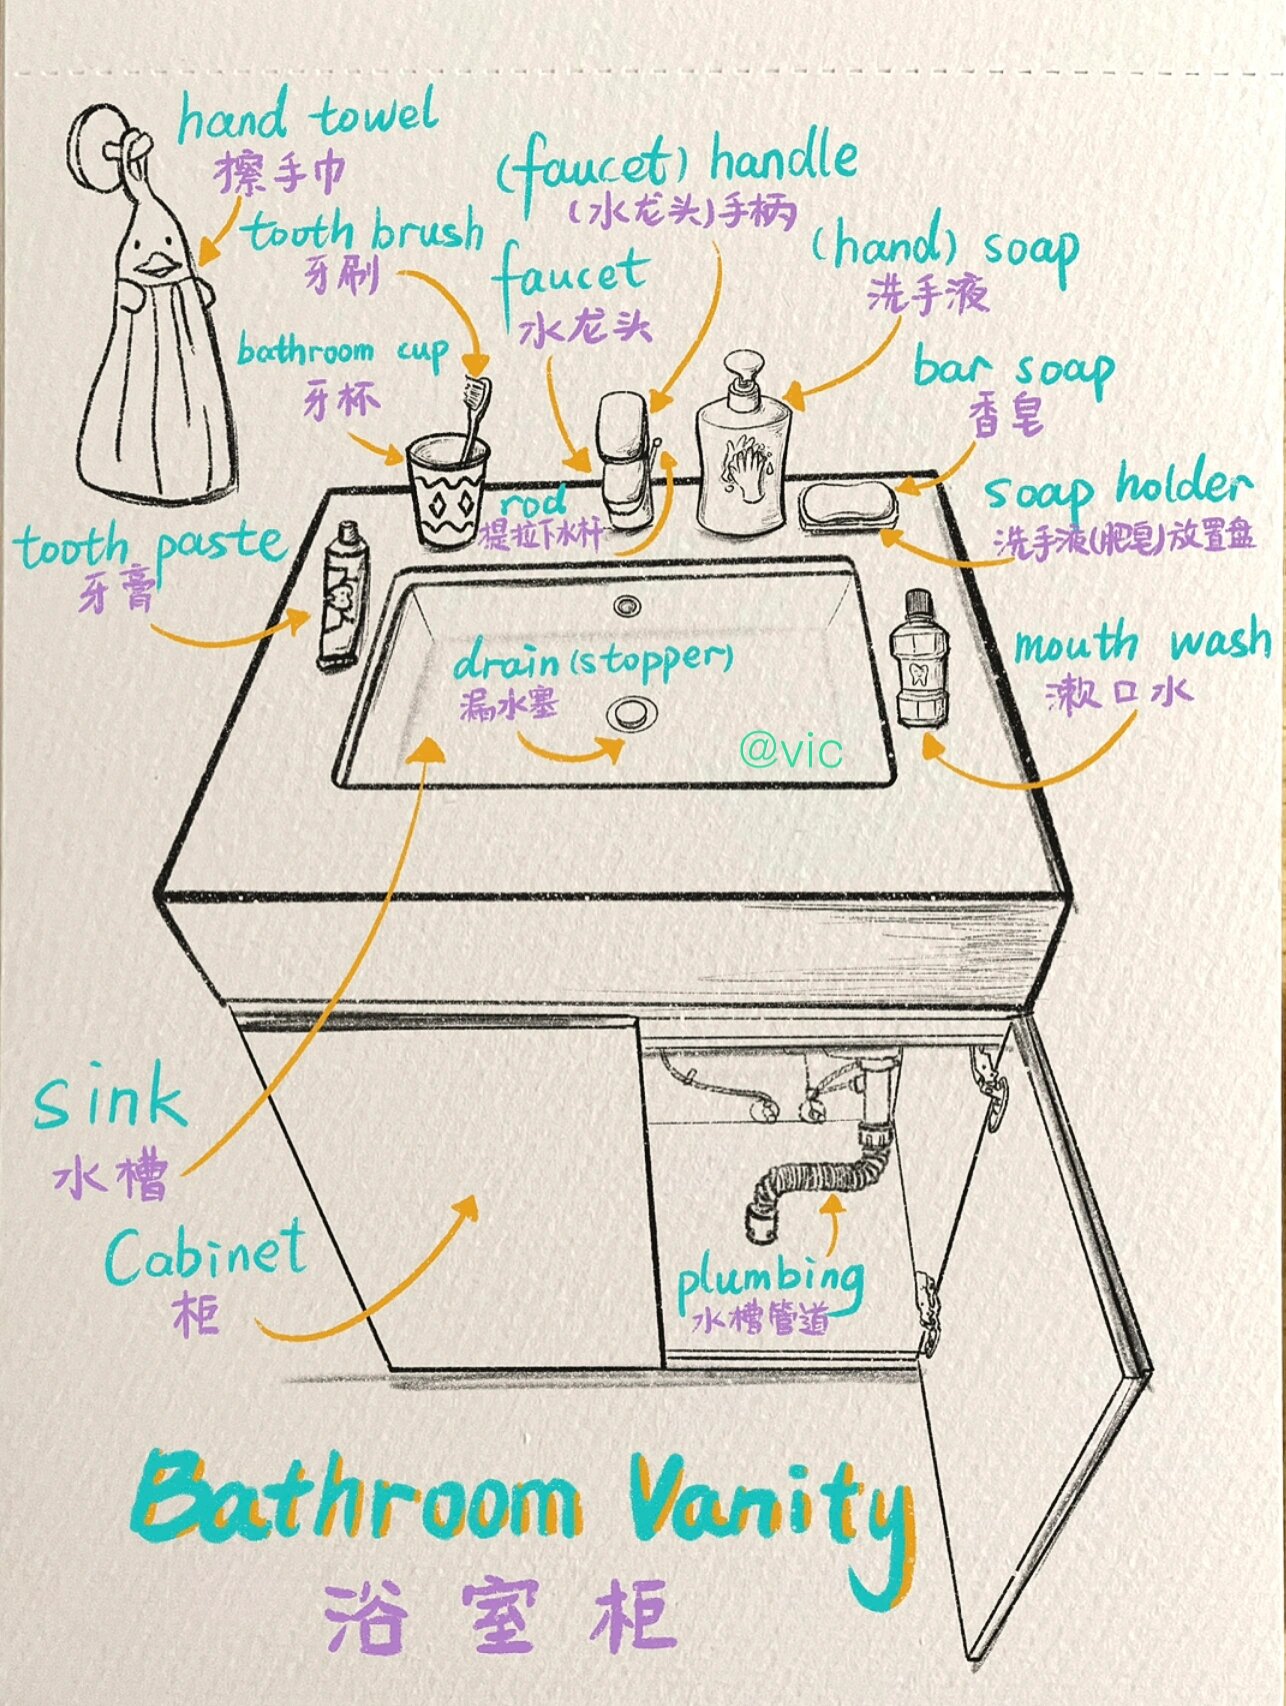 hand towel
擦手巾
(faucet) handle
(水龙头)手柄
tooth brush
牙刷
faucet
水龙头
(hand) soap
洗手液
bathroom cup
牙杯
bar soap
香皂
rod
提拉下水杆
soap holder
洗手液(肥皂)放置盘
tooth paste
牙膏
drain (stopper)
漏水塞
mouth wash
漱口水
@vic
sink
水槽
Cabinet
柜
plumbing
水槽管道
Bathroom Vanity
浴室柜